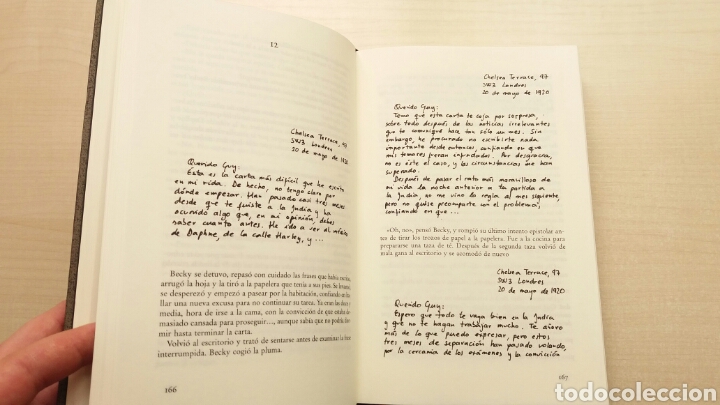 12
Chelsea Terrace, 97
SW3 Londres
20 de mayo de 1920
Querido Guy:
Esta es la carta más difícil que he escrito
en mi vida. De hecho, no tengo claro por
dónde empezar. Han pasado casi tres meses
desde que te fuiste a la India, y ha
ocurrido algo que, en mi opinión, debes
saber cuanto antes. He ido a ver al médico
de Daphne, de la calle Harley, y...
Becky se detuvo, repasó con cuidado las frases que había escrito,
arrugó la hoja y la tiró a la papelera que tenía a sus pies. Se levantó,
se desperezó y empezó a pasear por la habitación, confiando en
llar una nueva excusa para no continuar su tarea. Ya eran
media, hora de irse a la cama, con la convicción de que estaba
masiado cansada para proseguir..., aunque sabía que no podría
mir hasta terminar la carta.
Volvió al escritorio y trató de sentarse antes de
interrumpida. Becky cogió la pluma.
166
Chelsea Terrace, 97
SW3 Londres
20 de mayo de 1920
Querido Guy:
Temo que esta carta te coja por sorpresa,
sobre todo después de las noticias irrelevantes
que te comuniqué hace tan sólo un mes. Sin
embargo, he procurado no escribirte nada
importante desde entonces, confiando en que
mis temores fueran infundados. Por desgracia,
no es éste el caso, y las circunstancias me han
superado.
Después de pasar el rato más maravilloso de
mi vida la noche anterior a tu partida a
la India, no me vino la regla al mes siguiente,
pero no quise preocuparte con el problema,
confiando en que...
«Oh, no», pensó Becky, y rompió su último intento epistolar antes
de tirar los trozos de papel a la papelera. Fue a la cocina para
prepararse una taza de té. Después de la segunda taza volvió de
mala gana al escritorio y se acomodó de nuevo
Chelsea Terrace, 97
SW3 Londres
20 de mayo de 1920
Querido Guy:
Espero que todo te vaya bien en la India
y que no te hagan trabajar mucho. Te añoro
más de lo que puedo expresar, pero estos
tres meses de separación han pasado volando,
por la cercanía de los exámenes y la convicción
167
todocoleccion.net